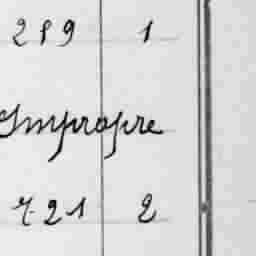 289 1
Impropre
7.21 2